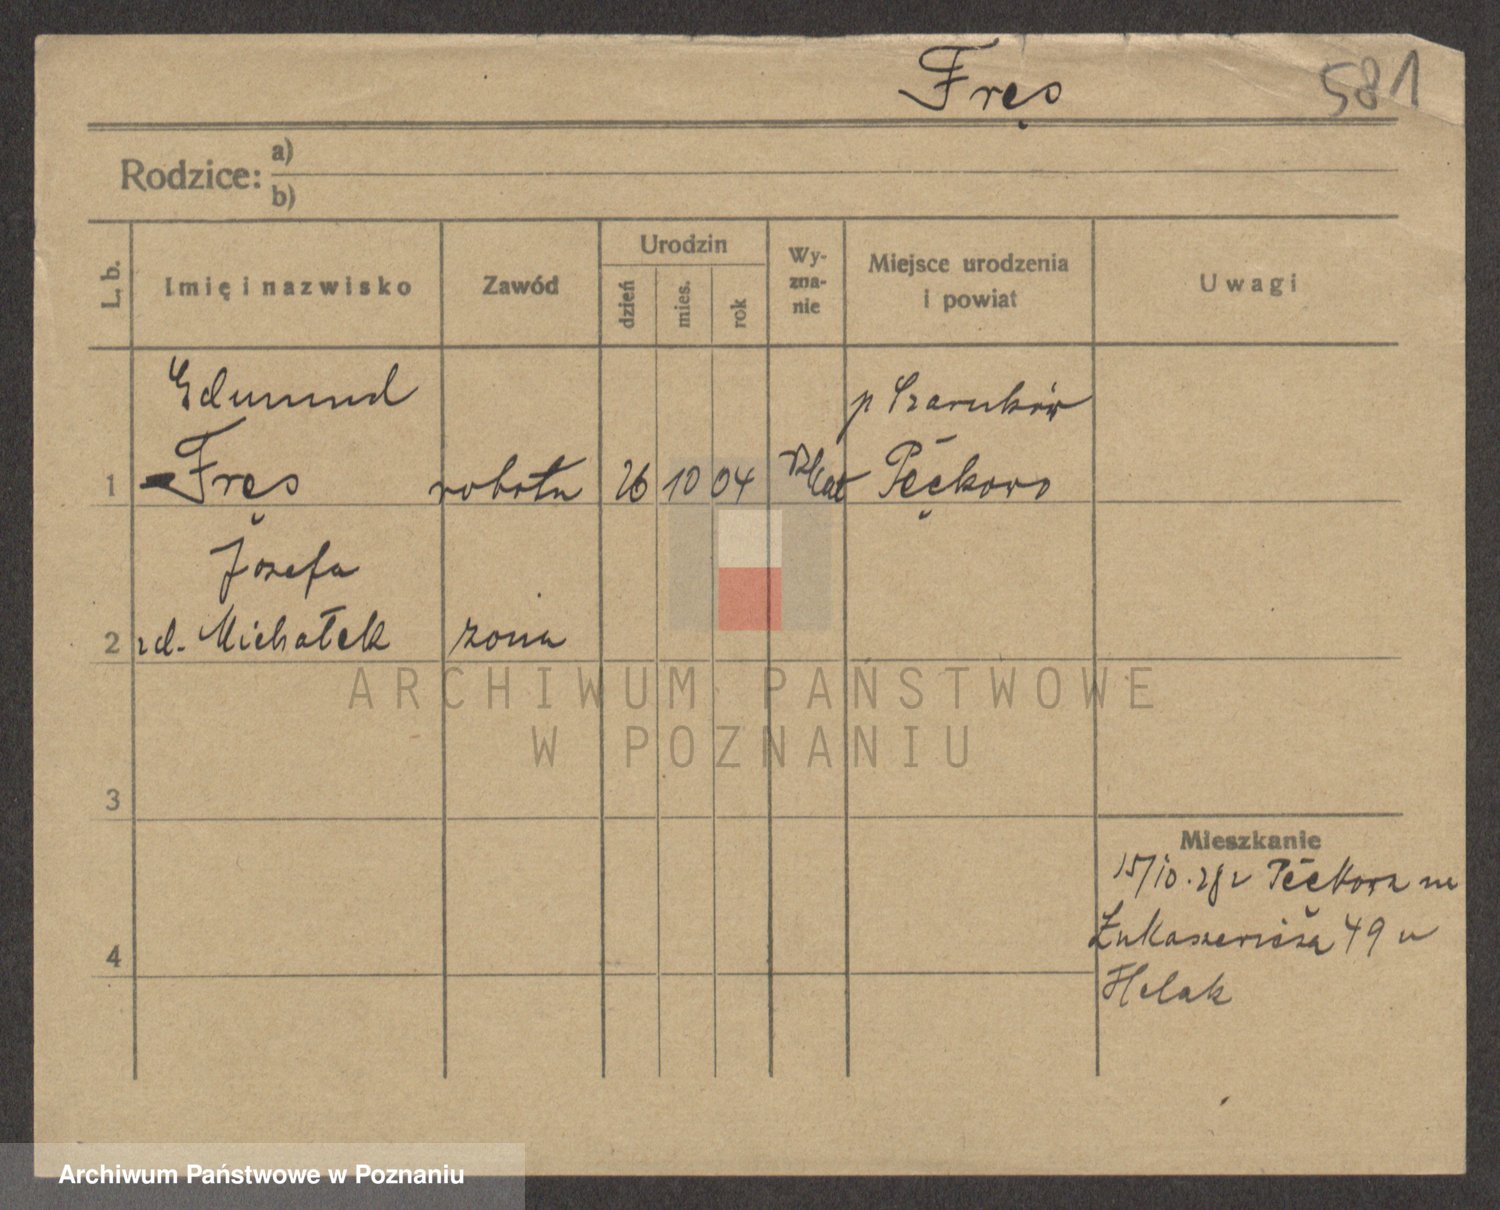 Fręs 581
Rodzice: a)
b)
L. b. Imię i nazwisko Zawód Urodzin dzień mies. rok Wy-zna-nie Miejsce urodzenia i powiat Uwagi
Edmund p Czarnków
1 Fręs robotn 26 10 04 rzkat Pęckowo
Józefa
2 zd. Michałek żona
3
Mieszkanie
15/10.28 z Pęckowa na
4 Łukaszewicza 49 u
Helak
ARCHIWUM PAŃSTWOWE
W POZNANIU
Archiwum Państwowe w Poznaniu